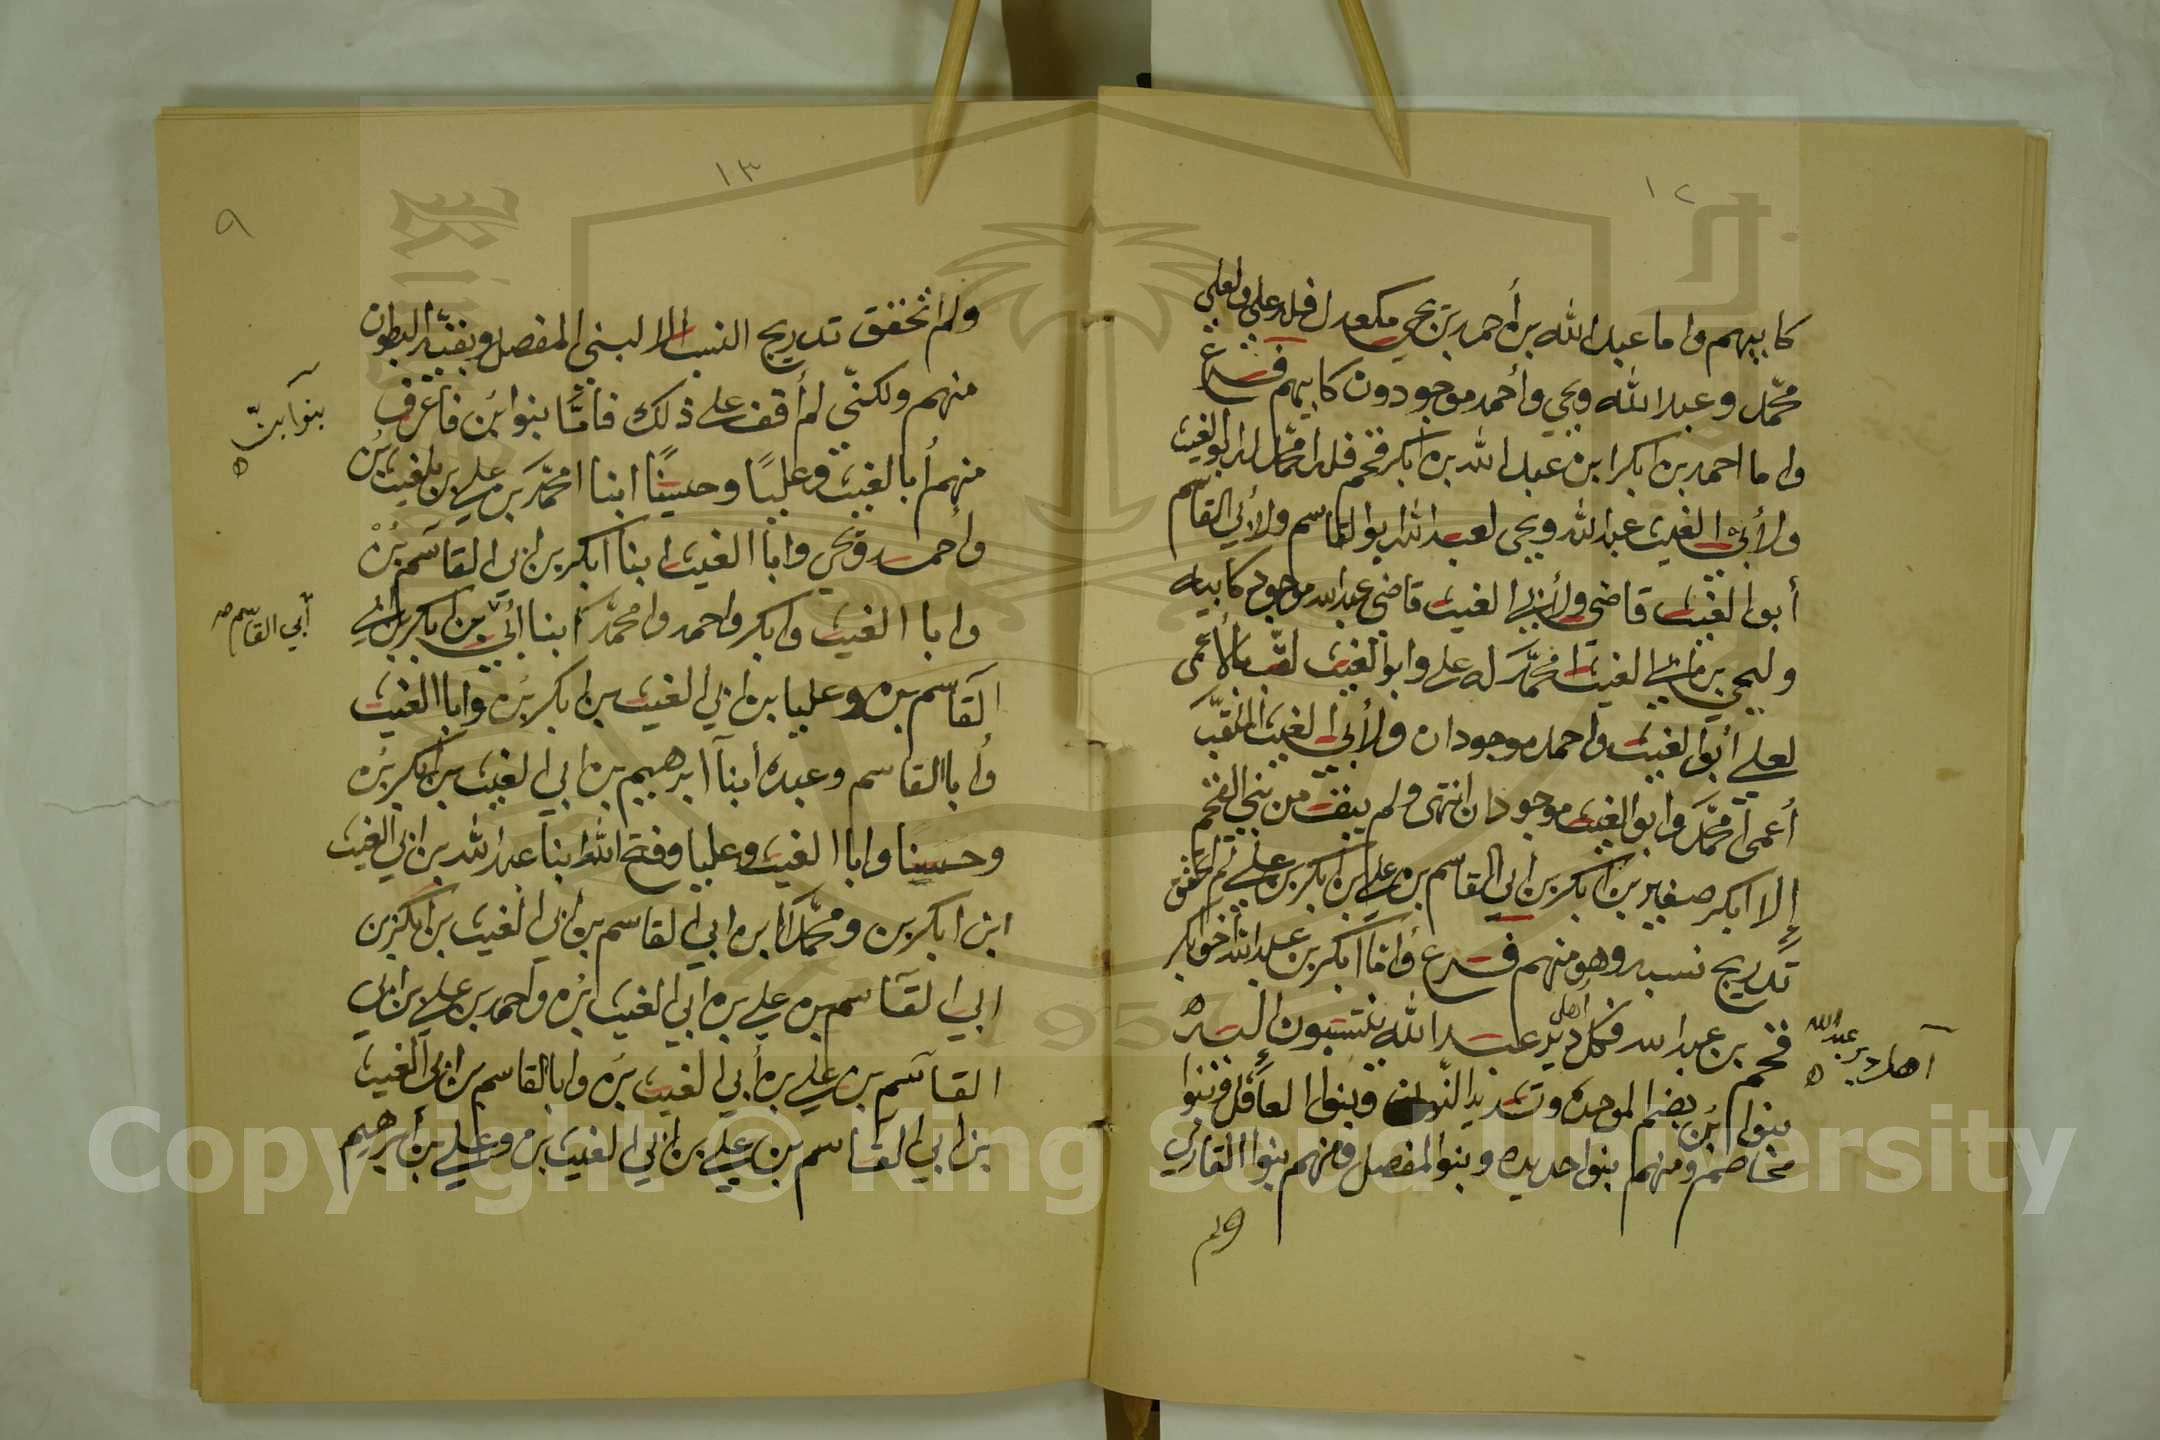 ١٢
كابيهم واما عبد الله بن أحمد بن يحي مكعدل فله علي ولعلي
محمد وعبد الله ويحي وأحمد موجودون كابيهم فرع
واما احمد بن ابكر ابن عبد الله بن ابكر فخم فله امحمد له ابو الغيث
ولأبي الغيث عبد الله ويحي لعبد الله ابو القاسم ولأبي القاسم
أبو الغيث قاضي ولأبي الغيث قاضي عبد الله موجود كابيه
وليحي بن ابي الغيث محمد له علي وابو الغيث لقب بالأعمى
لعلي أبو الغيث واحمد موجودان ولأبي الغيث الملقب
أعمى امحمد وابو الغيث موجودان انتهى ولم يبق من بني الفخم
إلا ابكر صغير بن ابكر بن أبي القاسم بن علي بن ابكر بن علي لم اتحقق
تدريج نسبه وهو منهم فرع وأما ابكر بن عبد الله اخو ابكر
فخم بن عبد الله فكل أهل دير عبد الله ينتسبون اليه
بنوا بُن بضم الموحده وتشديد النون وبنوا العاقل وبنوا
مخاصم ومنهم بنوا حديده وبنوا المفصل ومنهم بنوا القاري
ولم
آهل دير عبد الله
١٣
٩
ولم اتحقق تدريج النسب إلا لبني المفصل وبقية البطون
منهم ولكنّي لم أقف على ذلك فامّا بنوا بُن فاعرف
منهم أبا الغيث وعليًا وحسينًا ابنا امحمد بن علي بن بلغيث بُن
وأحمد ويحي وابا الغيث ابنا ابكر بن ابي القاسم بُن
وابا الغيث وابكر واحمد وامحمد ابنا ابي بن ابكر بن ابي
القاسم بن وعليا بن ابي الغيث بن ابكر بُن وابا الغيث
وأبا القاسم وعبده أبنا ابرهيم بن ابي الغيث بن ابكر بُن
وحسينًا وابا الغيث وعليا وفتح الله ابنا عبد الله بن ابي الغيث
ابن ابكر بن ومحمدا بن ابي القاسم بن ابي الغيث بن ابكر بن
ابي القاسم بن علي بن ابي الغيث بُن واحمد بن علي بن ابي
القاسم بن علي بن أبي الغيث بُن وابا القاسم بن ابي الغيث
بن ابي القاسم بن علي بن ابي الغيث بن وعلي بن أبرهيم
بنوا بنّ
أبي القاسم
Copyright © King Saud University
1957